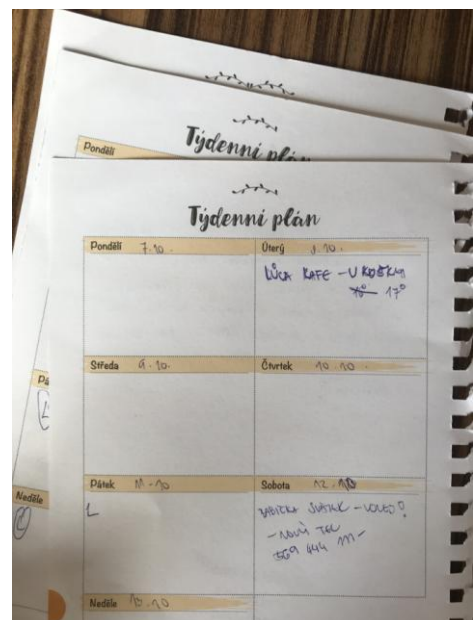 Pondělí
Týdenní plán
Týdenní plán
Pondělí 7.10.
Úterý 8.10.
LŮCA KAFE - U KOČKY
17°
Středa 9.10.
Čtvrtek 10.10
Pátek 11.10
Sobota 12.10
L
BABIČKA SVÁTEK -
- NOVÝ TEL
Neděle
Neděle 13.10